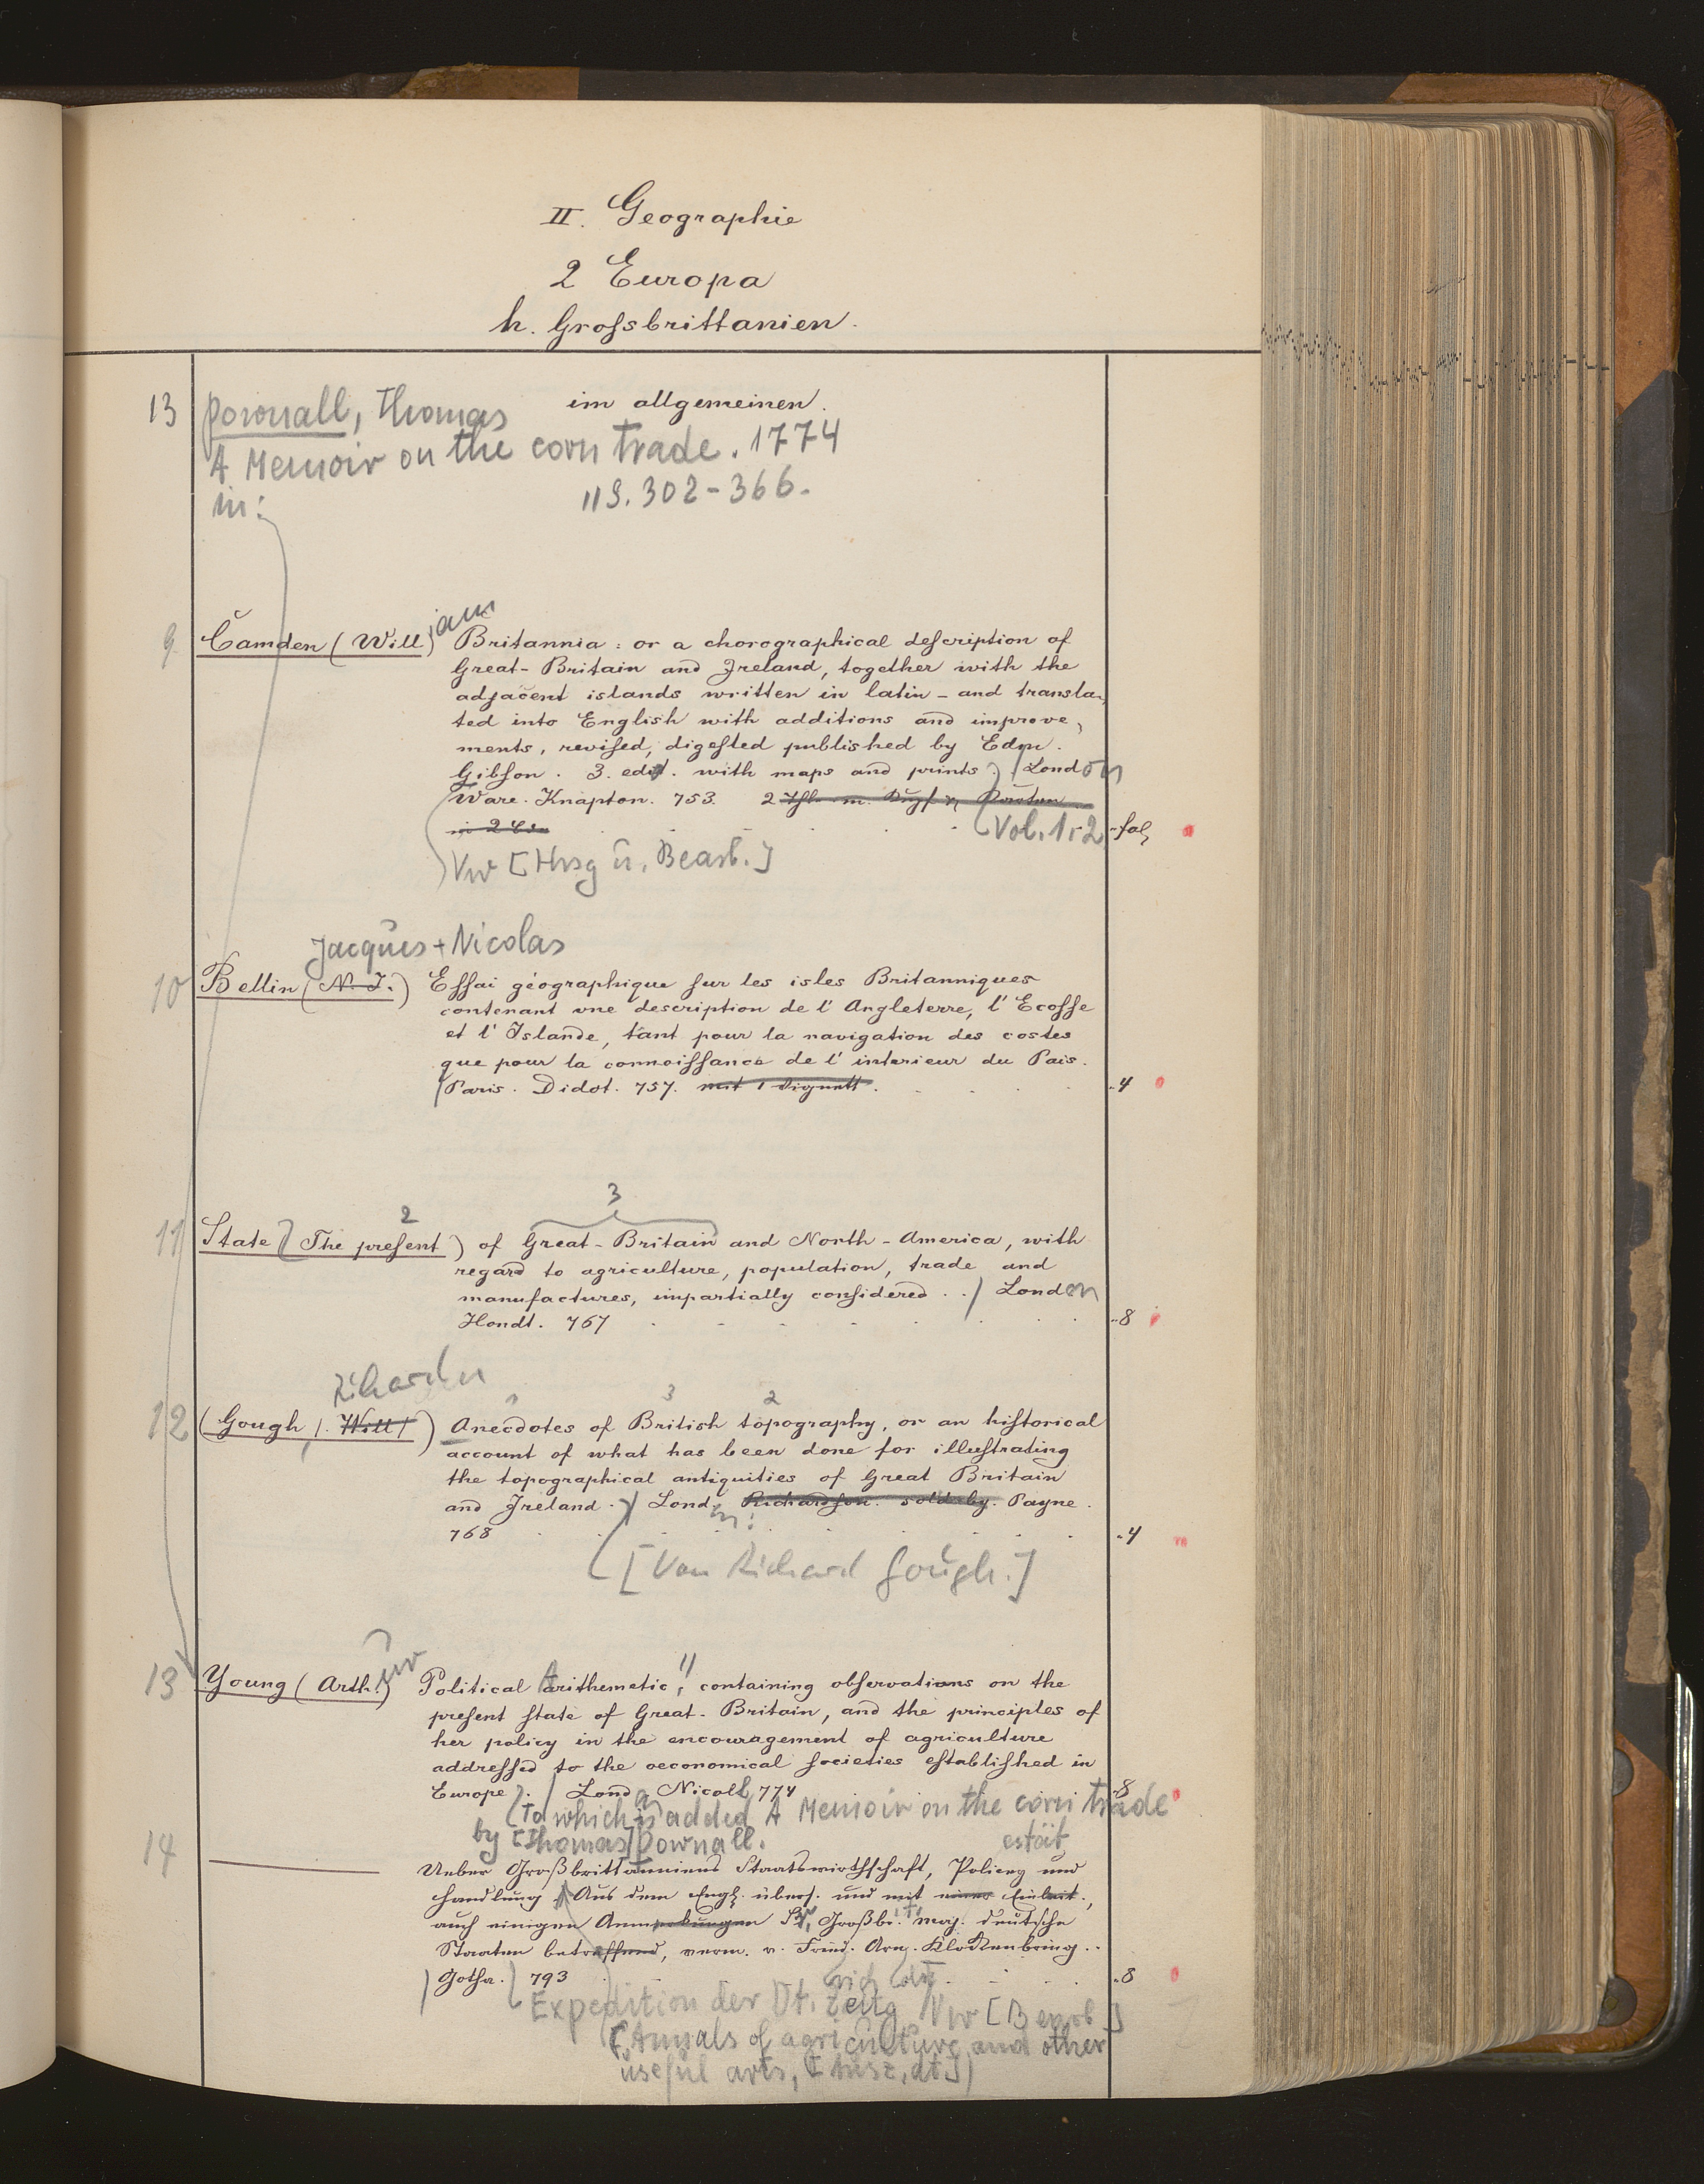 II. Geographie
2 Europa
h. Grosſbrittanien.
im allgemeinen.
13 Pownall, Thomas
A Memoir on the corn trade. 1774
in: 11 S. 302-366.
9 Camden (William) Britannia: or a chorographical deſcription of
Great-Britain and Ireland, together with the
adjacent islands written in latin - and transla-
ted into English with additions and improve-
ments, reviſed, digeſted published by Edm.
Gibſon. 3. edit. with maps and prints.) / London
Ware. Knapton. 753. 2
in 2 (Vol. 1.2 -fol,
Vw [Hrsg u. Bearb.]
Jacques + Nicolas
10 Bellin (N. J.) Eſſai géographique ſur les isles Britanniques
contenant une description de l'Angleterre, l'Ecoſſe
et l'Islande, tant pour la navigation des costes
que pour la connoiſſance de l'interieur du Pais.
/ Paris. Didot. 757. mit 1 Vignett. -4
2 3
11 State (The preſent) of Great-Britain and North-America, with
regard to agriculture, population, trade and
manufactures, impartially conſidered. . / London
Hondt. 767 -8
Richard
1 3 2
12 (Gough /. Will /) Anecdotes of British topography, or an hiſtorical
account of what has been done for illuſtrating
the topographical antiquities of Great Britain
and Ireland. / Lond. Richardſon. sold by. Payne.
768 -4
[Von Richard Gough.]
13 Young (Arthur) Political Arithemetic, containing obſervations on the
preſent ſtate of Great-Britain, and the principles of
her policy in the encouragement of agriculture
addreſſed to the oeconomical ſocieties eſtabliſhed in
Europe. / London Nicoll 774 -8
(To which is added A Memoir on the corn trade
by [Thomas] Pownall.
14 Ueber Großbrittanniens Staatswirthſchaft, Policey und
Handlung / Aus dem Engl. überſ. und mit einer Einleit.,
auch einigen Anmerkungen Sr. Großbr. Maj. deutſche
Staaten betreffend, verm. v. Fried. Arn. Klockenbring. .
/ Gotha. 793 -8
Expedition der Dt. Zeitg / Vw [Bearb.]
([Annals of agriculture and other
useful arts, dt.])